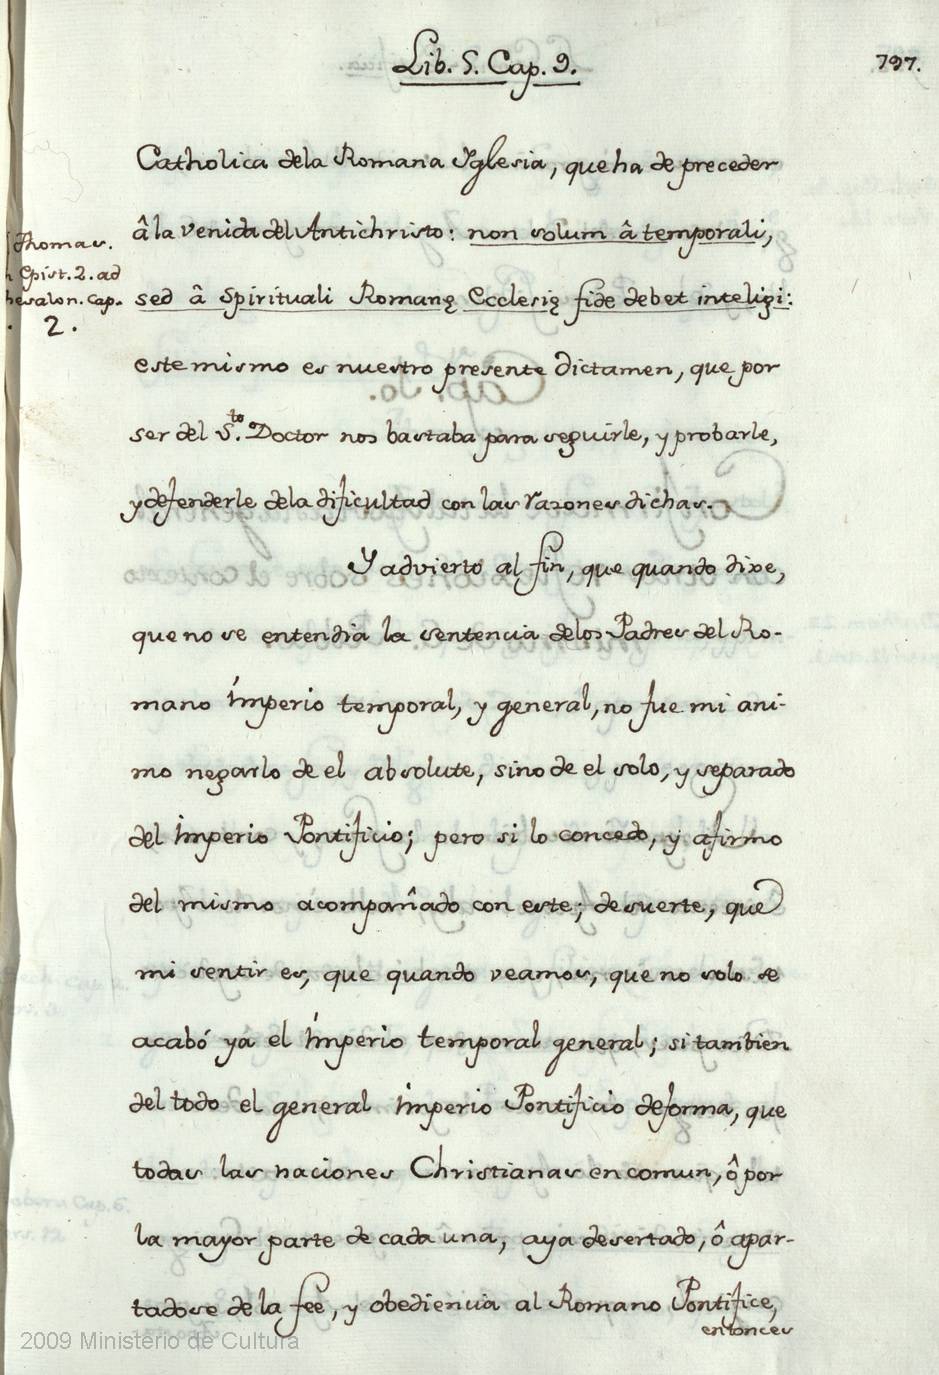 Lib. 5. Cap. 9.
797.
Catholica dela Romana Yglesia, que ha de preceder
â la venida del Antichristo: non solum â temporali,
sed â Spirituali Romanę Ecclesię fide debet inteligi:
Thomas.
Epist. 2. ad
hesalon. Cap.
2.
este mismo es nuestro presente dictamen, que por
ser del S.to Doctor nos bastaba para seguirle, y probarle,
y defenderle dela dificultad con las razones dichas.
Y advierto al fin, que quando dixe,
que no se entendia la sentencia delos Padres del Ro-
mano Ymperio temporal, y general, no fue mi ani-
mo negarlo de el absolute, sino de el solo, y separado
del Ymperio Pontificio; pero si lo concedo, y afirmo
del mismo acompañado con este; desuerte, que
mi sentir es, que quando veamos, que no solo se
acabó yá el Ymperio temporal general; si tambien
del todo el general Ymperio Pontificio deforma, que
todas las naciones Christianas en comun, ô por
la mayor parte de cada una, aya desertado, ô apar-
tadose de la fee, y obediencia al Romano Pontifice,
entonces
2009 Ministerio de Cultura